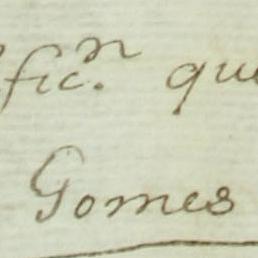 fic.ⁿ qu
Gomes